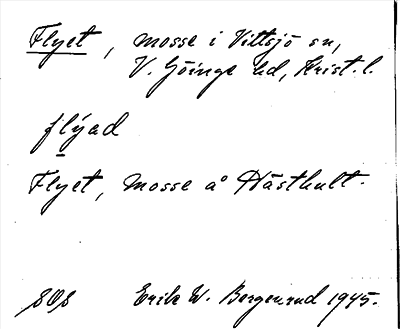 Flyet, mosse i Vittsjö sn,
V. Göinge hd, Krist. l.
flýad
Flyet, mosse å Hästhult.
SOs Erik W. Bergenrud 1945.